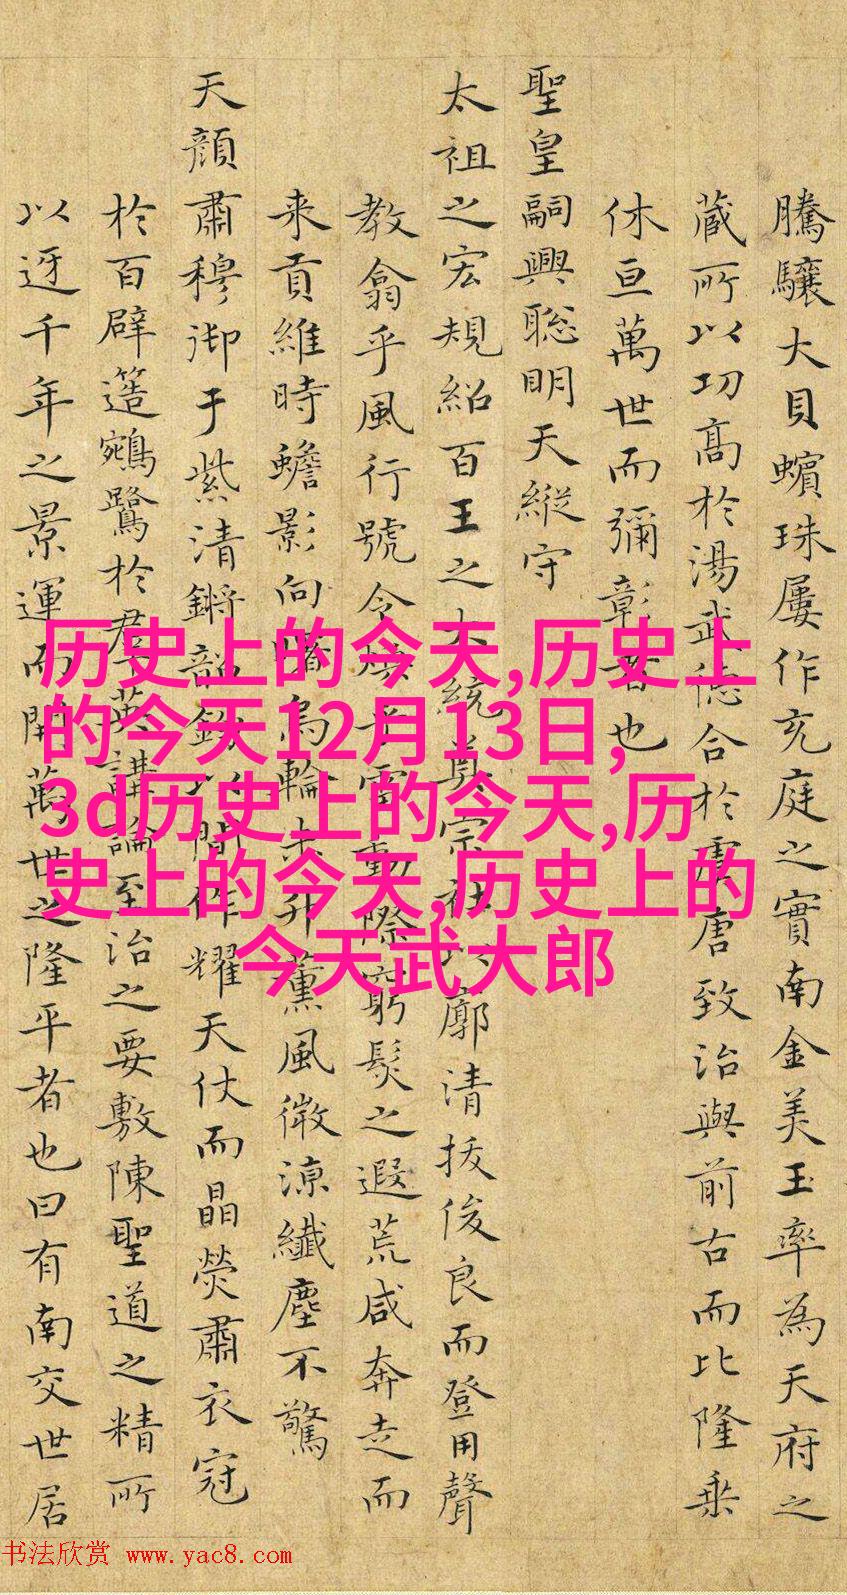 騰驤大貝蠙珠屢作充庭之實南金美玉率為天府之
藏所以功高於湯武德合於虞唐致治與前古而比隆垂
休亘萬世而彌彰者也
聖皇嗣興聡明天縱守
太祖之宏規紹百王之大統尊宗社以廓清拔俊良而登用聲
教翕乎風行號令乎雷動際窮髮之遐荒咸奔走而
来貢維時蟾影向曙烏輪未升薰風微涼纖塵不驚
天顔肅穆御于紫清鏘韶鈞以間作耀天仗而晶熒肅衣冠
於百辟簉鵷鷺於羣英講論至治之要敷陳聖道之精所
以迓千年之景運而開萬世之隆平者也曰有南交世居
历史上的今天,历史上
的今天12月13日,
3d历史上的今天,历
史上的今天,历史上的
今天武大郎
书法欣赏 www.yac8.com